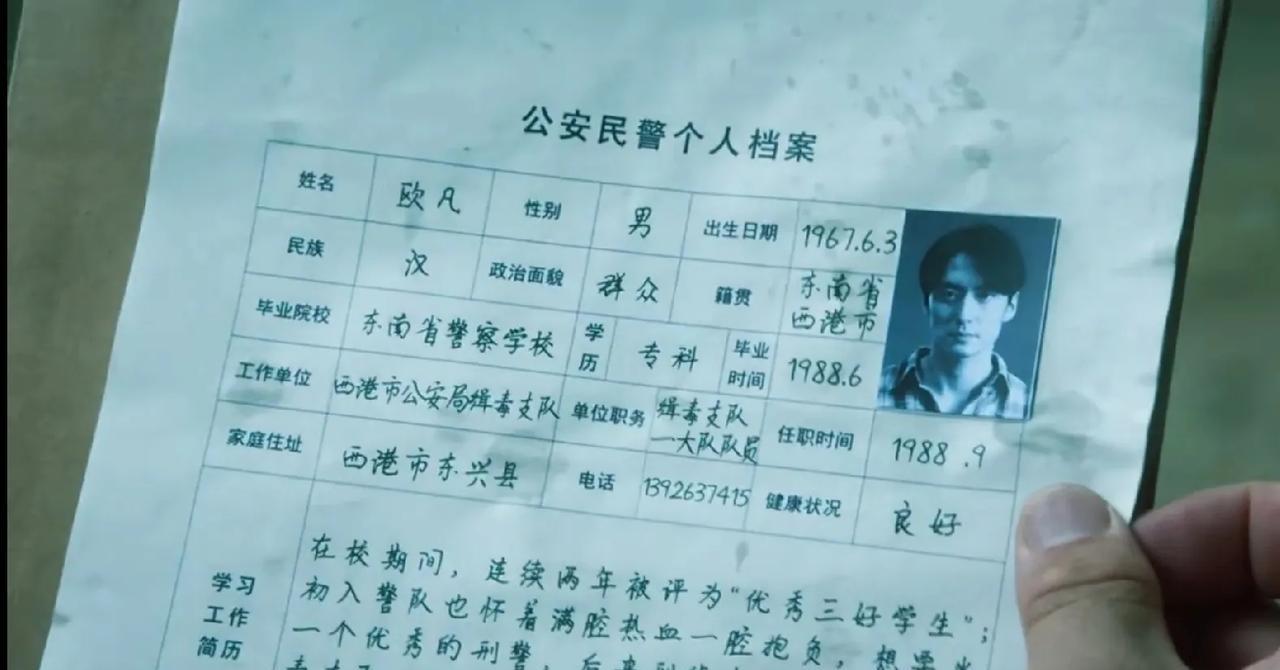 公安民警个人档案
姓名 欧凡 性别 男 出生日期 1967.6.3
民族 汉 政治面貌 群众 籍贯 东南省
西港市
毕业院校 东南省警察学校 学
历 专科 毕业
时间 1988.6
工作单位 西港市公安局缉毒支队 单位职务 缉毒支队
一大队队员 任职时间 1988.9
家庭住址 西港市东兴县 电话 1392637415 健康状况 良好
学习
工作
简历
在校期间，连续两年被评为“优秀三好学生”；
初入警队也怀着满腔热血一腔抱负，想要
一个优秀的刑警